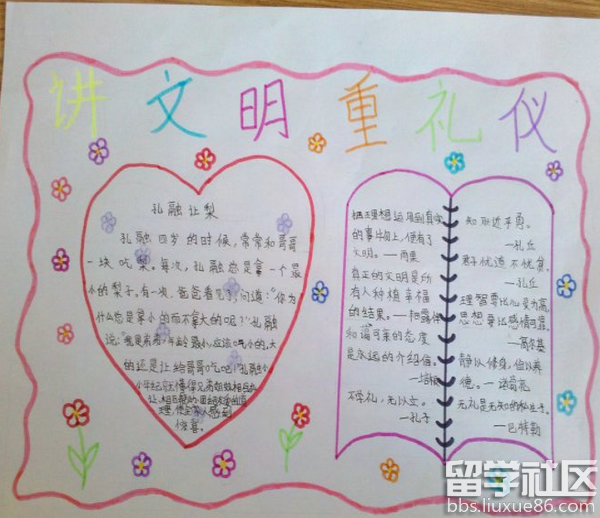 讲文明重礼仪
孔融让梨
孔融四岁的时候，常常和哥哥
一块吃梨。每次，孔融总是拿一个最
小的梨子。有一次，爸爸看见了，问道："你为
什么总是拿小的而不拿大的呢？"孔融
说："我是弟弟，年龄最小，应该吃小的，大
的还是让给哥哥吃吧！"孔融
小年纪就懂得兄弟姐妹相互礼
让、相互
理，使全家人感到
惊喜。
把理想运用到真实
的事物上，便有了
文明。——雨果
真正的文明是所
有人种植幸福
的结果。
和谒可亲的态度
是永远的介绍信。
——培根
不学礼，无以立。
——孔子
知耻近乎勇。
——孔丘
君子忧道不忧贫。
——孔丘
理智要比心灵为高，
思想要比感情可靠。
——高尔基
静以修身，俭以养
德。——诸葛亮
无礼是无知的私生子。
——巴特勒
留学社区
bbs.liuxue86.com